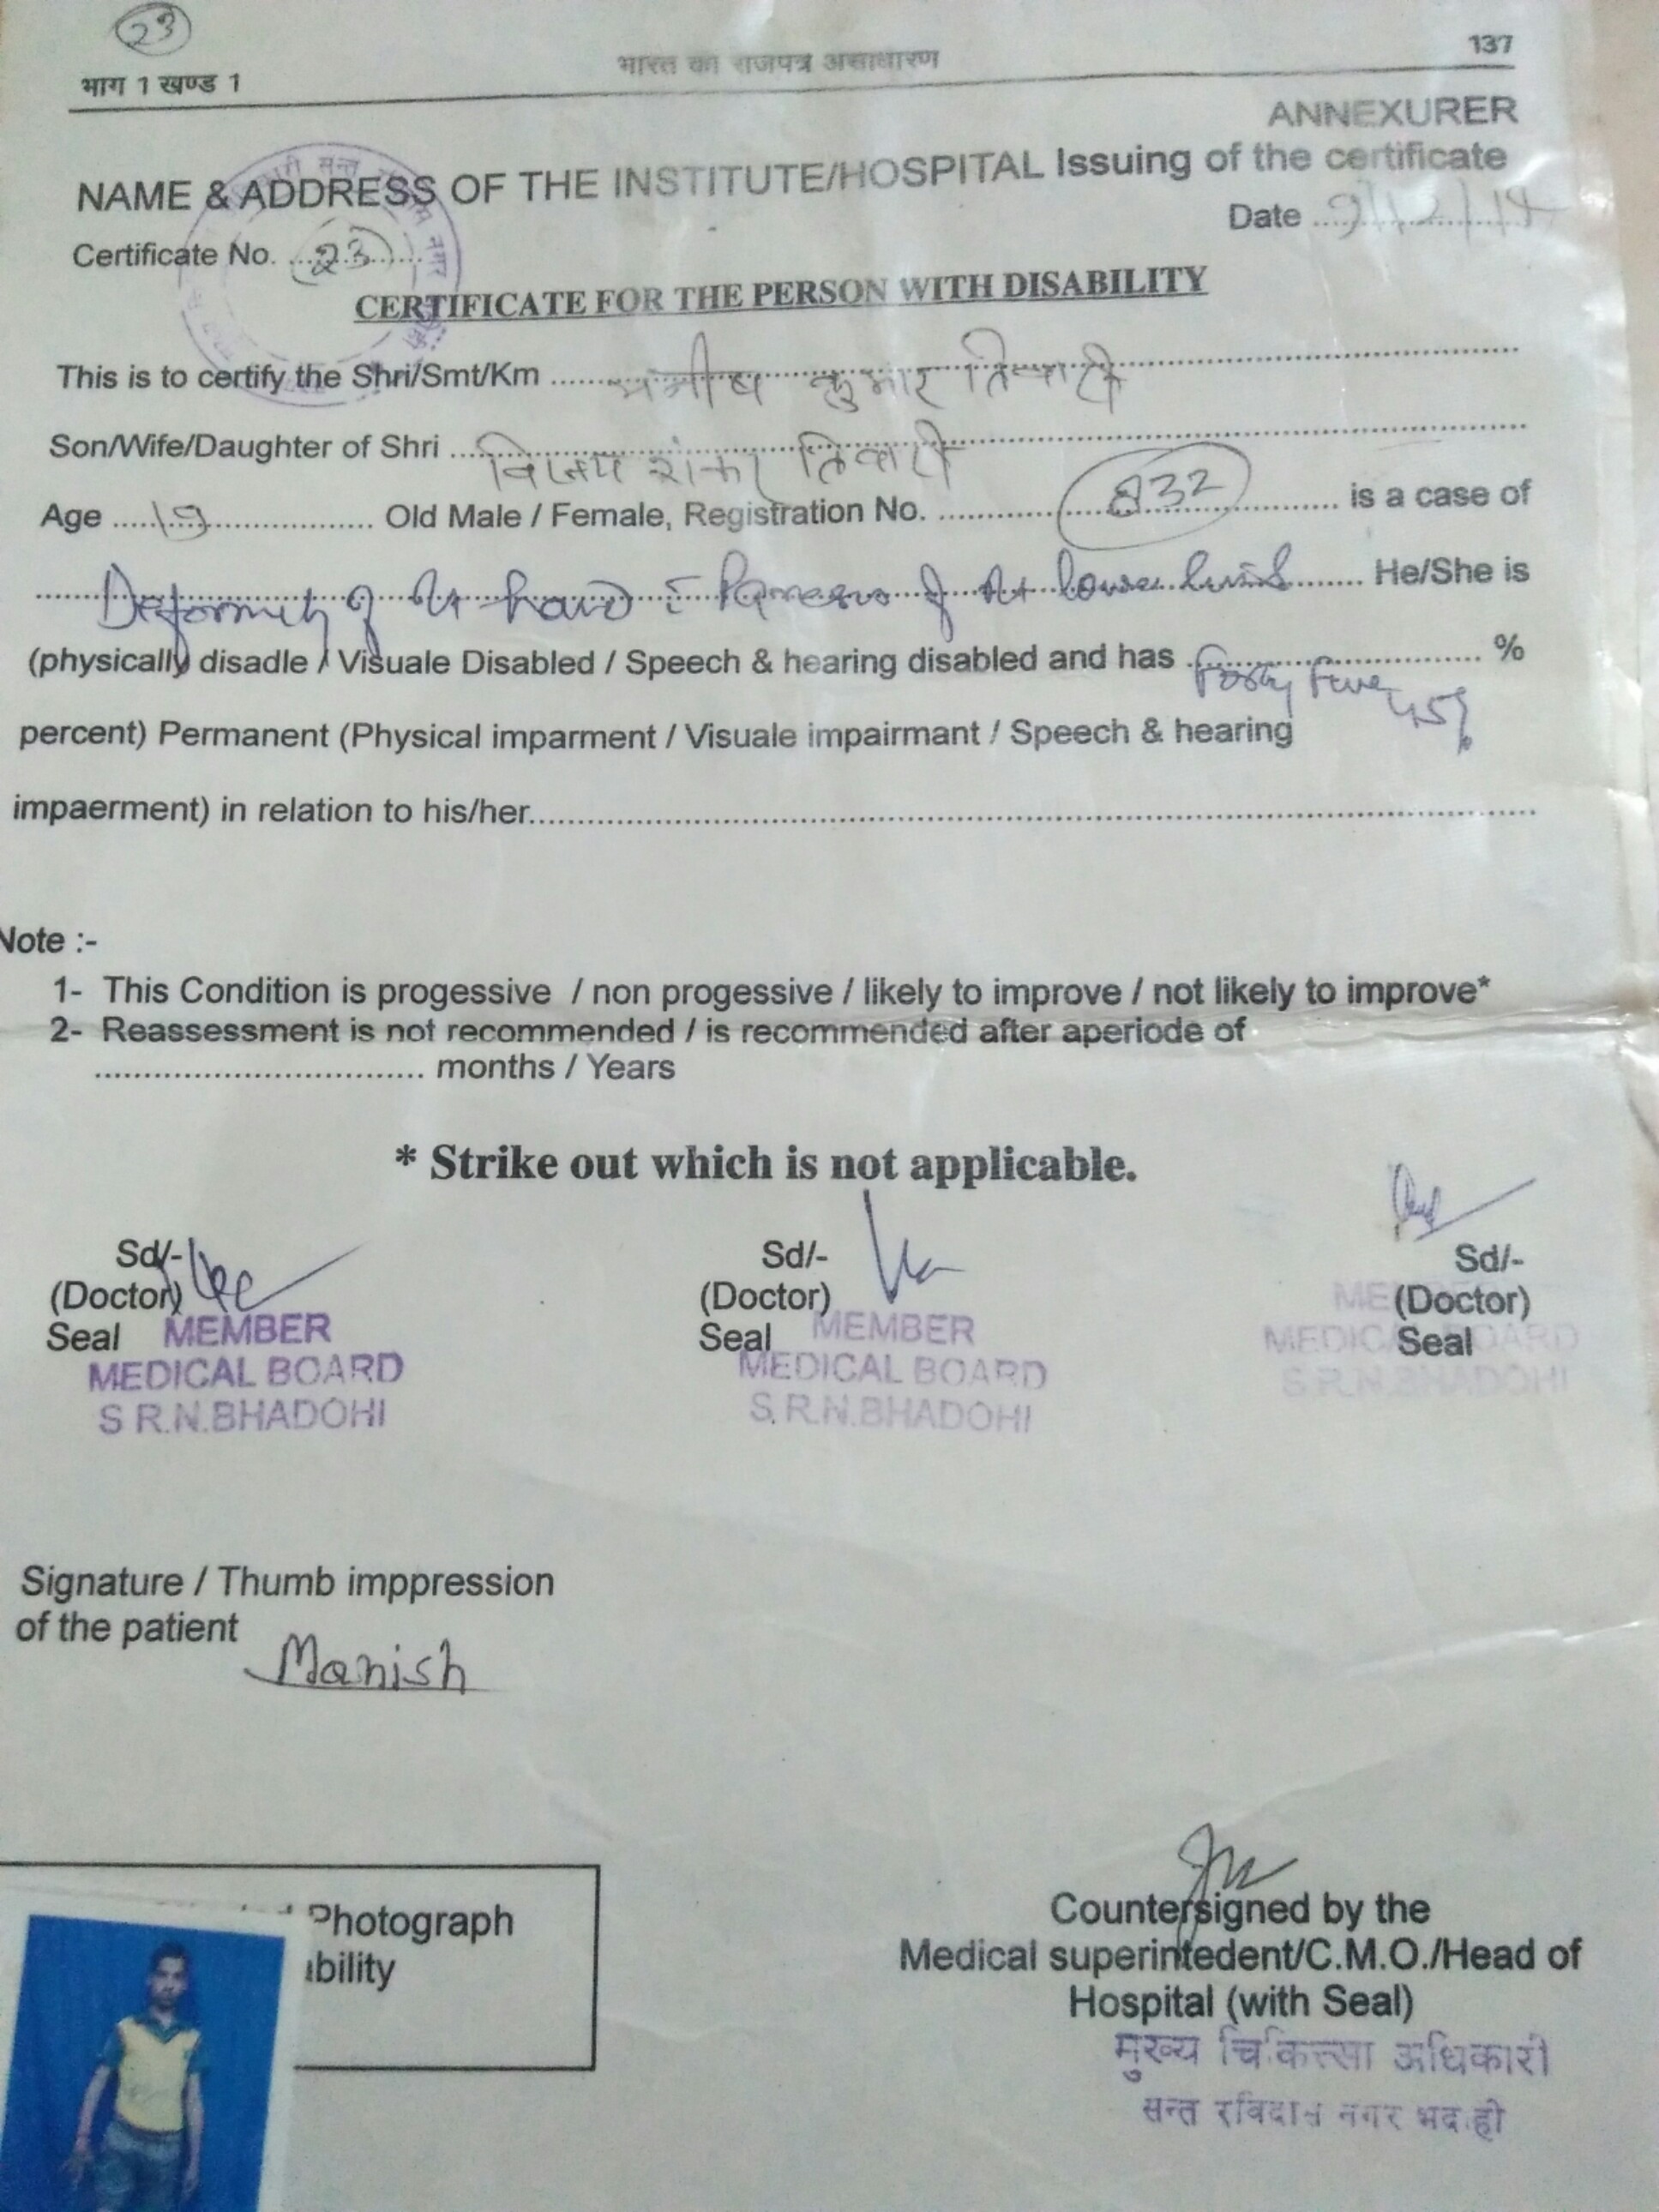 23
भाग 1 खण्ड 1
भारत का राजपत्र असाधारण
137
ANNEXURER
NAME & ADDRESS OF THE INSTITUTE/HOSPITAL Issuing of the certificate
Date ..................
Certificate No. ...23...
CERTIFICATE FOR THE PERSON WITH DISABILITY
This is to certify the Shri/Smt/Km ...... मनीष कुमार तिवारी ......
Son/Wife/Daughter of Shri ...... विजय शंकर तिवारी ......
Age ...19... Old Male / Female, Registration No. ...832... is a case of
Deformity of Rt hand c̄ of Rt lower limb ...... He/She is
(physically disadle / Visuale Disabled / Speech & hearing disabled and has ...... %
Forty Five 45%
percent) Permanent (Physical imparment / Visuale impairmant / Speech & hearing
impaerment) in relation to his/her......
Note :-
1- This Condition is progessive / non progessive / likely to improve / not likely to improve*
2- Reassessment is not recommended / is recommended after aperiode of
...... months / Years
* Strike out which is not applicable.
Sd/- Sd/- Sd/-
(Doctor) (Doctor) (Doctor)
Seal MEMBER Seal MEMBER Seal
MEDICAL BOARD MEDICAL BOARD MEDICAL BOARD
S R.N.BHADOHI S.R.N.BHADOHI S.R.N.BHADOHI
Signature / Thumb imppression
of the patient
Manish
Photograph
bility
Countersigned by the
Medical superintedent/C.M.O./Head of
Hospital (with Seal)
मुख्य चिकित्सा अधिकारी
सन्त रविदास नगर भदोही